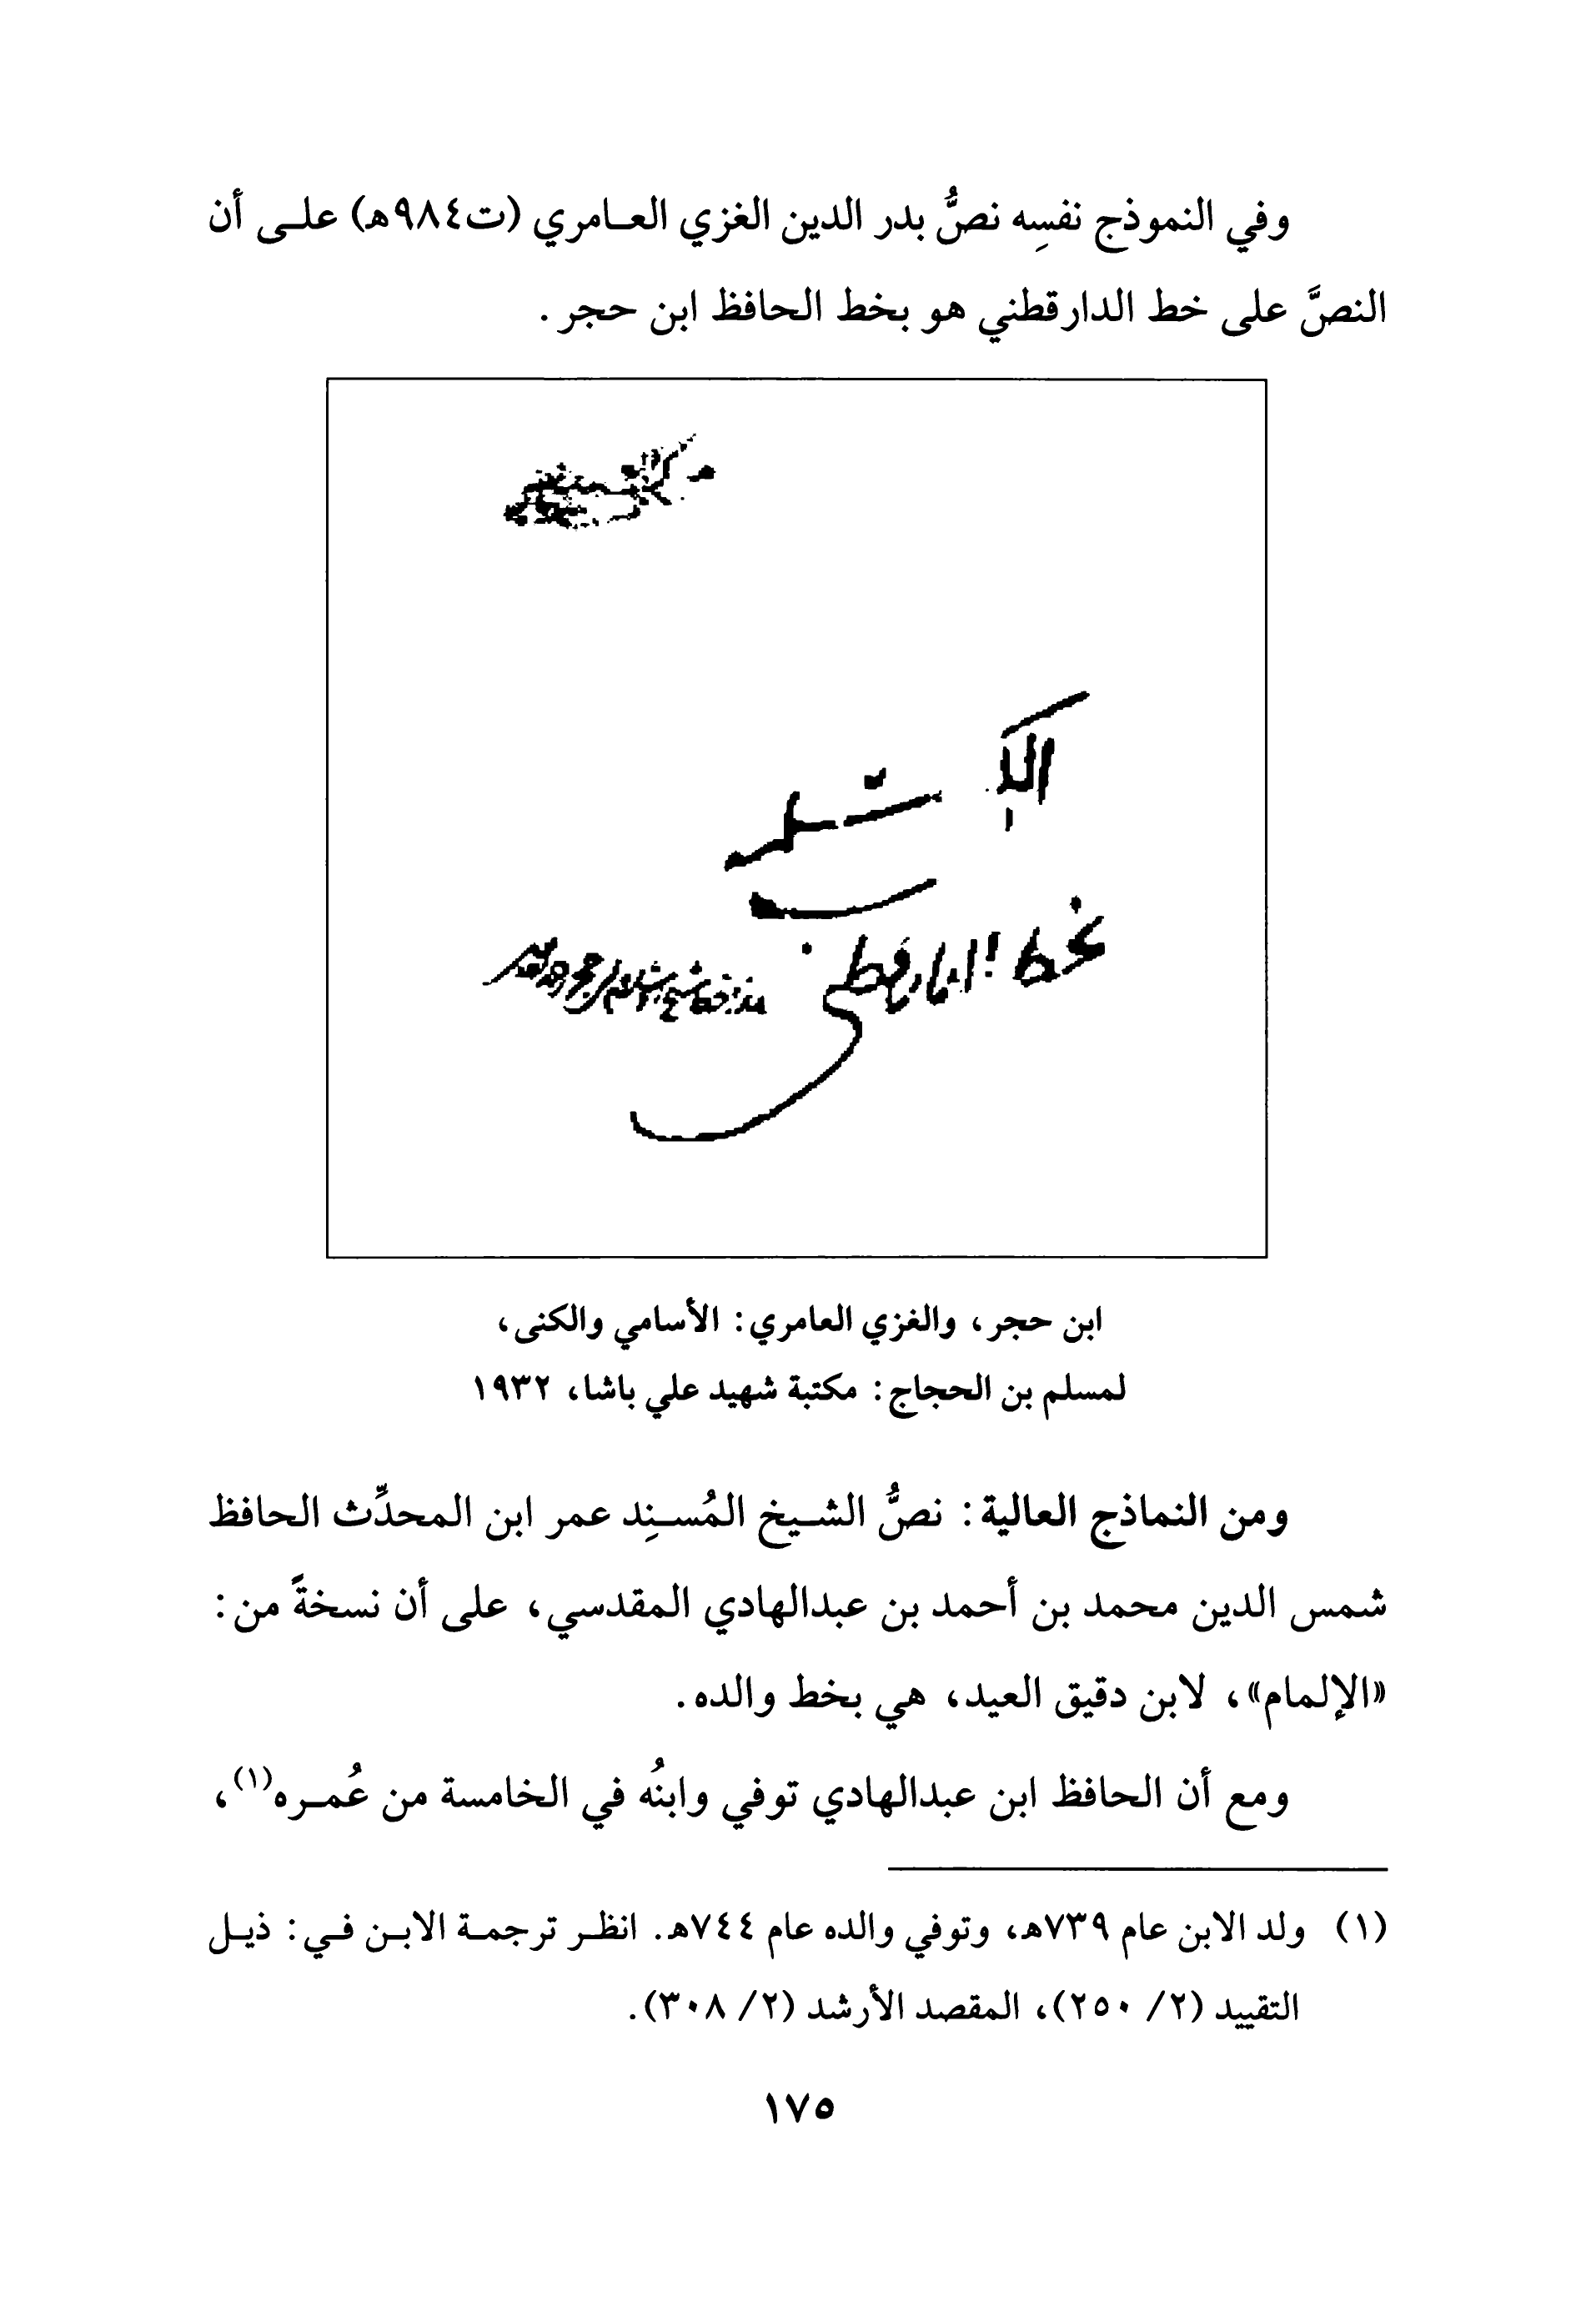 وفي النموذج نفسِه نصُّ بدر الدين الغزي العـامري (ت٩٨٤هـ) علـى أن
النصَّ على خط الدارقطني هو بخط الحافظ ابن حجر.
بخط الدارقطني
ابن حجر، والغزي العامري: الأسامي والكنى،
لمسلم بن الحجاج: مكتبة شهيد علي باشا، ١٩٣٢
ومن النماذج العالية: نصُّ الشـيخ المُسـنِد عمر ابن المحدِّث الحافظ
شمس الدين محمد بن أحمد بن عبدالهادي المقدسي، على أن نسخةً من:
«الإلمام»، لابن دقيق العيد، هي بخط والده.
ومع أن الحافظ ابن عبدالهادي توفي وابنُه في الخامسة من عُمـره(١)،
(١) ولد الابن عام ٧٣٩هـ، وتوفي والده عام ٧٤٤هـ. انظـر ترجمـة الابـن فـي: ذيـل
التقييد (٢/ ٢٥٠)، المقصد الأرشد (٢/ ٣٠٨).
١٧٥